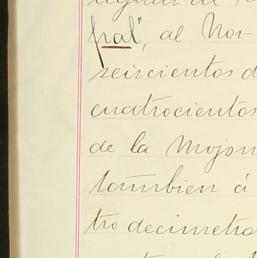 pal", al Nor-
seiscientos d
cuatrocientos
de la Mojon
tambien á
tro decimetro